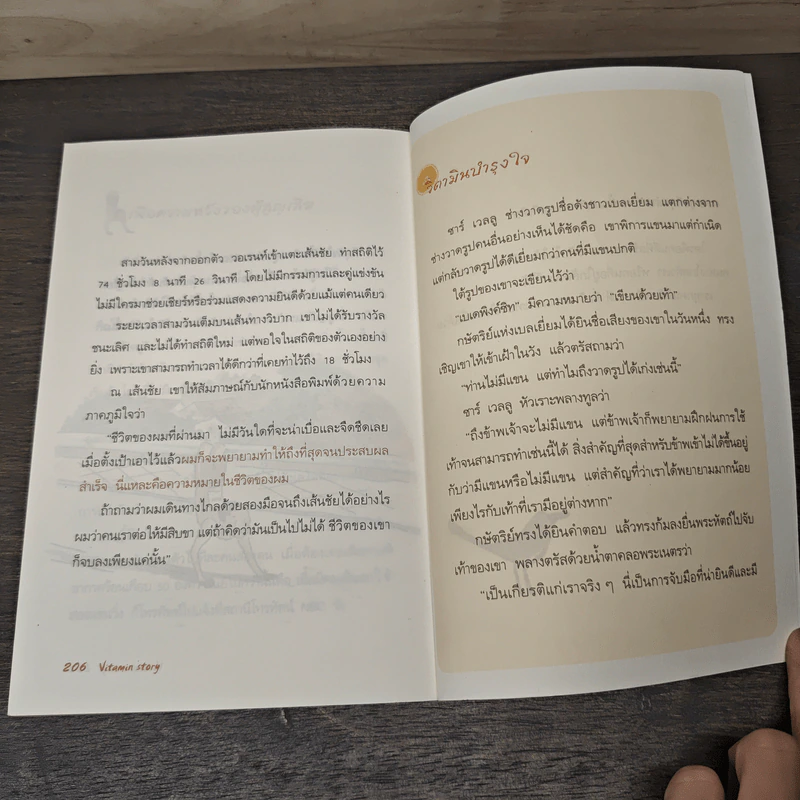 สามวันหลังจากออกตัว วอเรนท์เข้าแตะเส้นชัย ทำสถิติไว้
74 ชั่วโมง 8 นาที 26 วินาที โดยไม่มีกรรมการและคู่แข่งขัน
ไม่มีใครมาช่วยเชียร์หรือร่วมแสดงความยินดีด้วยแม้แต่คนเดียว
ระยะเวลาสามวันเต็มบนเส้นทางวิบาก เขาไม่ได้รับรางวัล
ชนะเลิศ และไม่ได้ทำสถิติใหม่ แต่พอใจในสถิติของตัวเองอย่าง
ยิ่ง เพราะเขาสามารถทำเวลาได้ดีกว่าที่เคยทำไว้ถึง 18 ชั่วโมง
ณ เส้นชัย เขาให้สัมภาษณ์กับนักหนังสือพิมพ์ด้วยความ
ภาคภูมิใจว่า
"ชีวิตของผมที่ผ่านมา ไม่มีวันใดที่จะน่าเบื่อและจืดชืดเลย
เมื่อตั้งเป้าเอาไว้แล้วผมก็จะพยายามทำให้ถึงที่สุดจนประสบผล
สำเร็จ นี่แหละคือความหมายในชีวิตของผม
ถ้าถามว่าผมเดินทางไกลด้วยสองมือจนถึงเส้นชัยได้อย่างไร
ผมว่าคนเราต่อให้มีสิบขา แต่ถ้าคิดว่ามันเป็นไปไม่ได้ ชีวิตของเขา
ก็จบลงเพียงแค่นั้น"
206 Vitamin story
วิตามินบำรุงใจ
ซาร์ เวลลู ช่างวาดรูปชื่อดังชาวเบลเยี่ยม แตกต่างจาก
ช่างวาดรูปคนอื่นอย่างเห็นได้ชัดคือ เขาพิการแขนมาแต่กำเนิด
แต่กลับวาดรูปได้ดีเยี่ยมกว่าคนที่มีแขนปกติ
ใต้รูปของเขาจะเขียนไว้ว่า
"เบเดพิงค์ซิท" มีความหมายว่า "เขียนด้วยเท้า"
กษัตริย์แห่งเบลเยี่ยมได้ยินชื่อเสียงของเขาในวันหนึ่ง ทรง
เชิญเขาให้เข้าเฝ้าในวัง แล้วตรัสถามว่า
"ท่านไม่มีแขน แต่ทำไมถึงวาดรูปได้เก่งเช่นนี้"
ซาร์ เวลลู หัวเราะพลางทูลว่า
"ถึงข้าพเจ้าจะไม่มีแขน แต่ข้าพเจ้าก็พยายามฝึกฝนการใช้
เท้าจนสามารถทำเช่นนี้ได้ สิ่งสำคัญที่สุดสำหรับข้าพเจ้าไม่ได้ขึ้นอยู่
กับว่ามีแขนหรือไม่มีแขน แต่สำคัญที่ว่าเราได้พยายามมากน้อย
เพียงไรกับเท้าที่เรามีอยู่ต่างหาก"
กษัตริย์ทรงได้ยินคำตอบ แล้วทรงก้มลงยื่นพระหัตถ์ไปจับ
เท้าของเขา พลางตรัสด้วยน้ำตาคลอพระเนตรว่า
"เป็นเกียรติแก่เราจริง ๆ นี่เป็นการจับมือที่น่ายินดีและมี